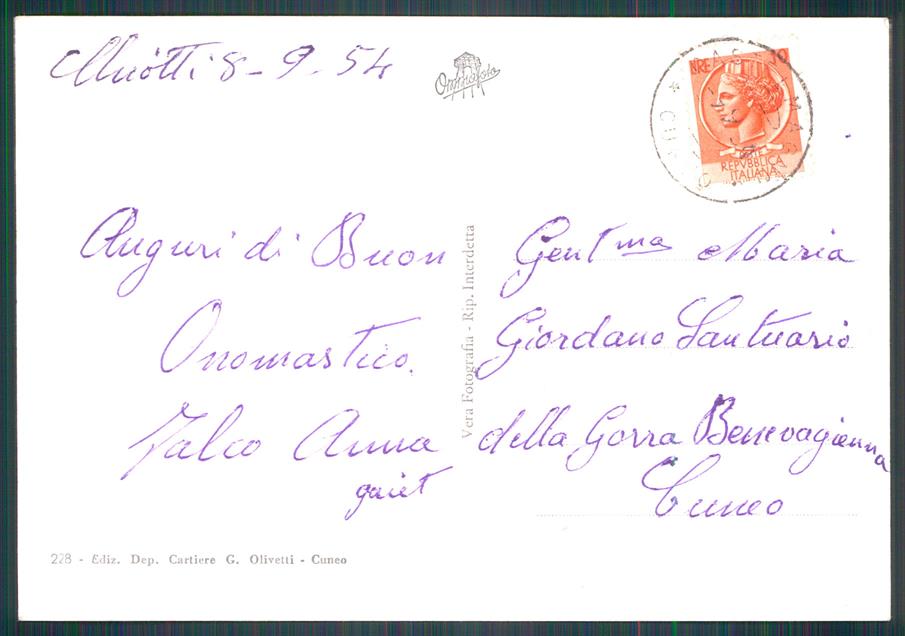 8-9-54
LIRE 10
REPVBBLICA
ITALIANA
Auguri di Buon
Onomastico.
Falco Anna
Gent.ma Maria
Giordano Santuario
della Gorra Benevagienna
Cuneo
Vera Fotografia - Rip. Interdetta
228 - Ediz. Dep. Cartiere G. Olivetti - Cuneo